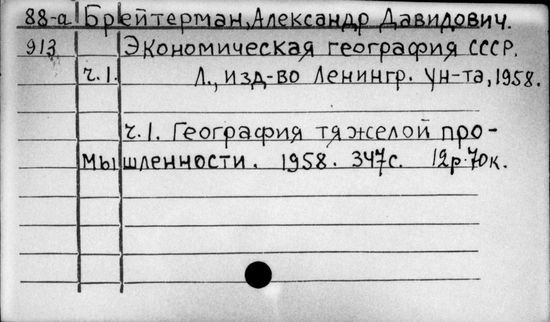 88-а Брейтерман, Александр Давидович.
913 Экономическая география СССР.
ч.1. Л., изд-во Ленингр. ун-та, 1958.
ч.1. География тяжелой про-
мышленности. 1958. 347с. 12р.70к.